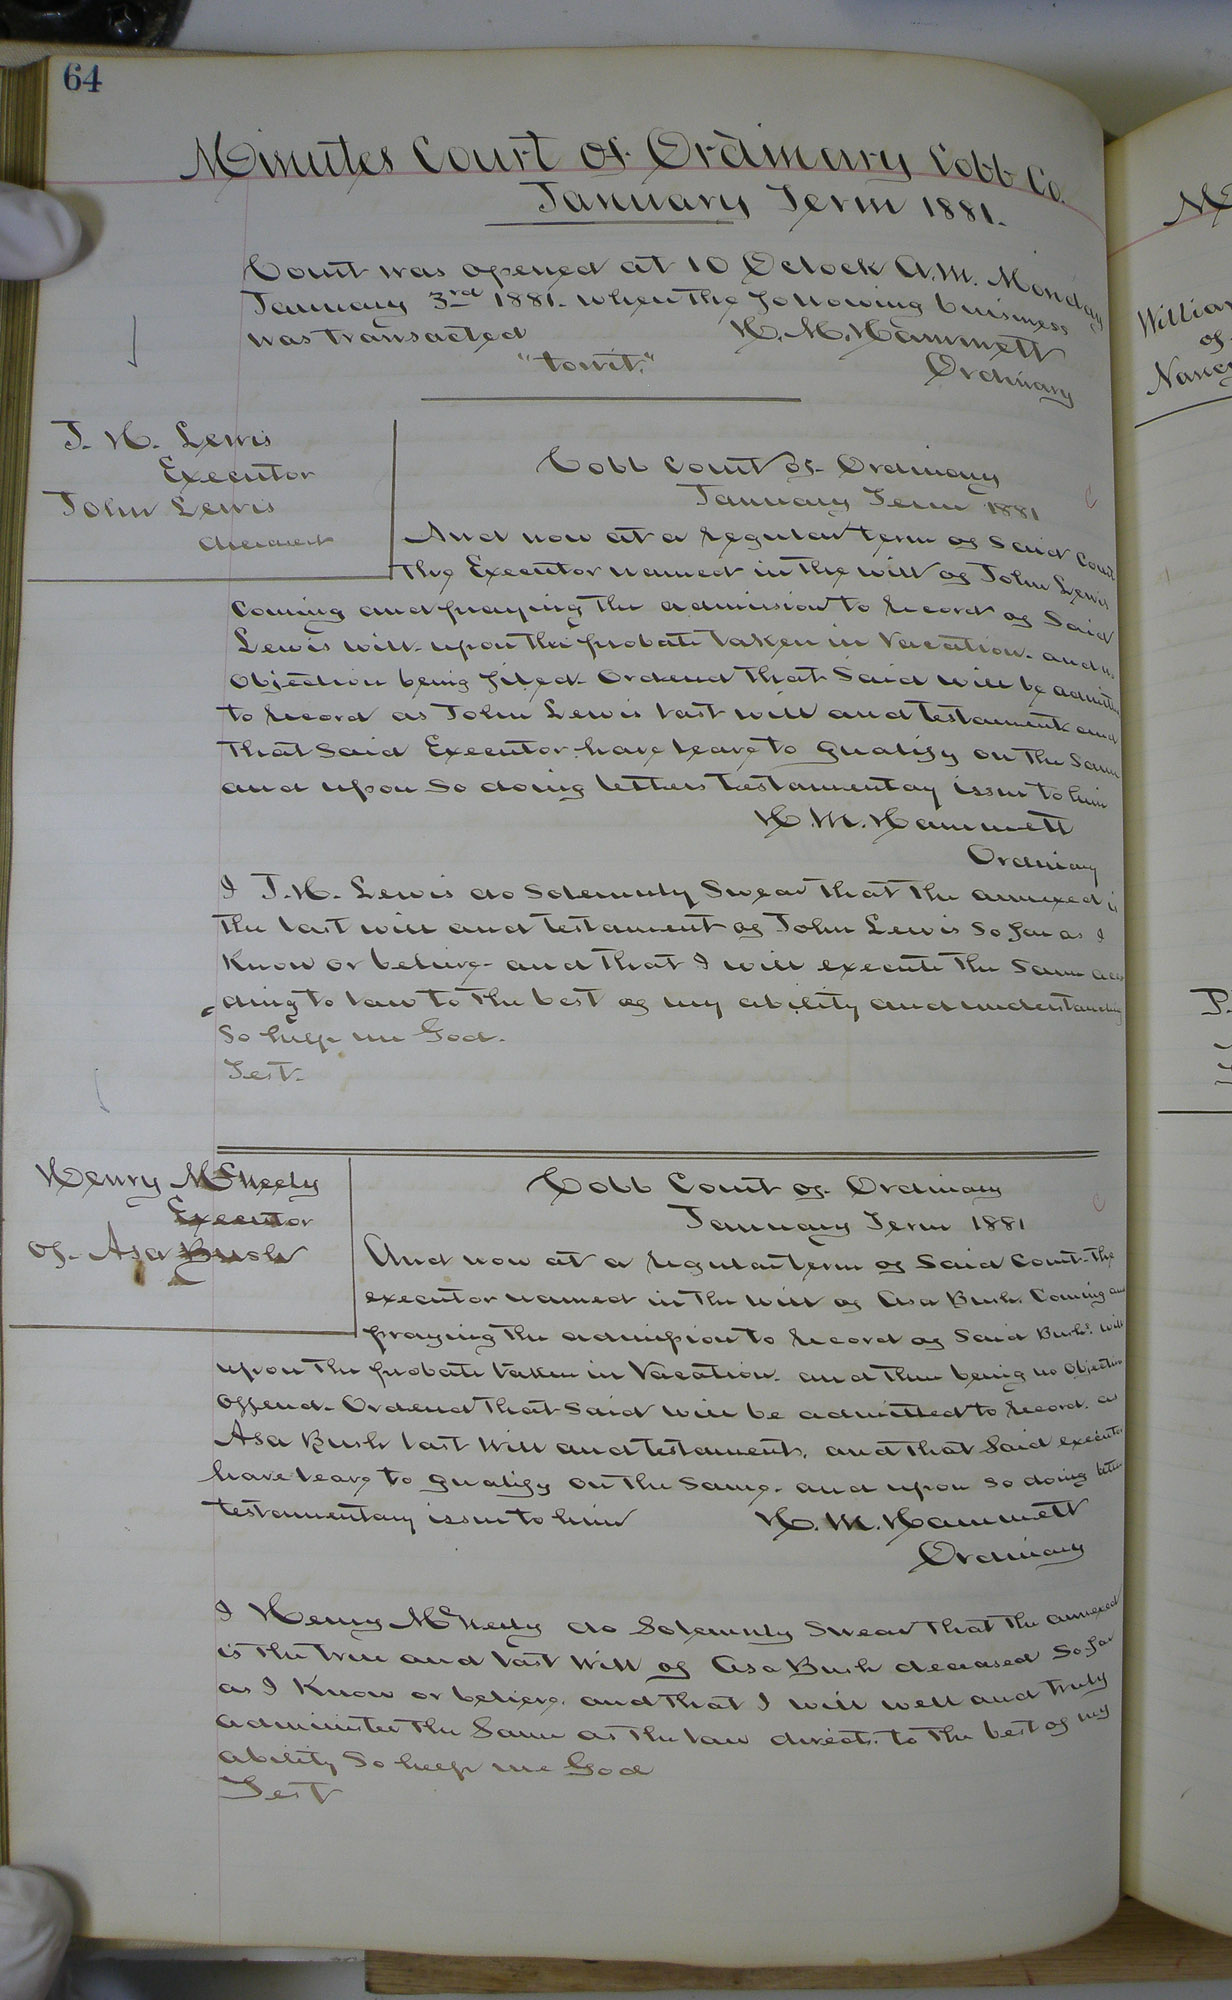 64
Minutes Court of Ordinary Cobb Co.
January Term 1881.
Court was opened at 10 Oclock A.M. Monday
January 3rd 1881. when the following business
was transacted H. M. Hammett
"towit." Ordinary
J. H. Lewis
Executor
John Lewis
deceased
Cobb Court of Ordinary
January Term 1881
And now at a regular term of Said Court
the Executor named in the will of John Lewis
Coming and praying the admission to Record of Said
Lewis will upon the probate taken in Vacation. and no
objection being filed. Ordered that Said will be admitted
to Record as John Lewis last will and testament and
that said Executor have leave to qualify on the Same
and upon So doing letters testamentary issue to him
H. M. Hammett
Ordinary
I J. H. Lewis do Solemnly Swear that the annexed is
the last will and testament of John Lewis So far as I
Know or believe and that I will execute the Same accor
ding to law to the best of my ability and understanding
So help me God.
Test.
Henry McNeely
Executor
of Asa Bush
Cobb Court of Ordinary
January Term 1881
And now at a regular term of Said Court. the
executor named in the will of Asa Bush. Coming and
praying the admission to Record of Said Bush's will
upon the probate taken in Vacation. and there being no objection
offered. Ordered that said will be admitted to Record. as
Asa Bush last Will and testament. and that Said executor
have leave to qualify on the same. and upon so doing letters
testamentary issue to him H. M. Hammett
Ordinary
I Henry McNeely do Solemnly Swear that the annexed
is the true and last Will of Asa Bush deceased So far
as I Know or believe. and that I will well and truly
administer the Same as the law directs. to the best of my
ability So help me God
Test
Willia
of
Nancy
P.